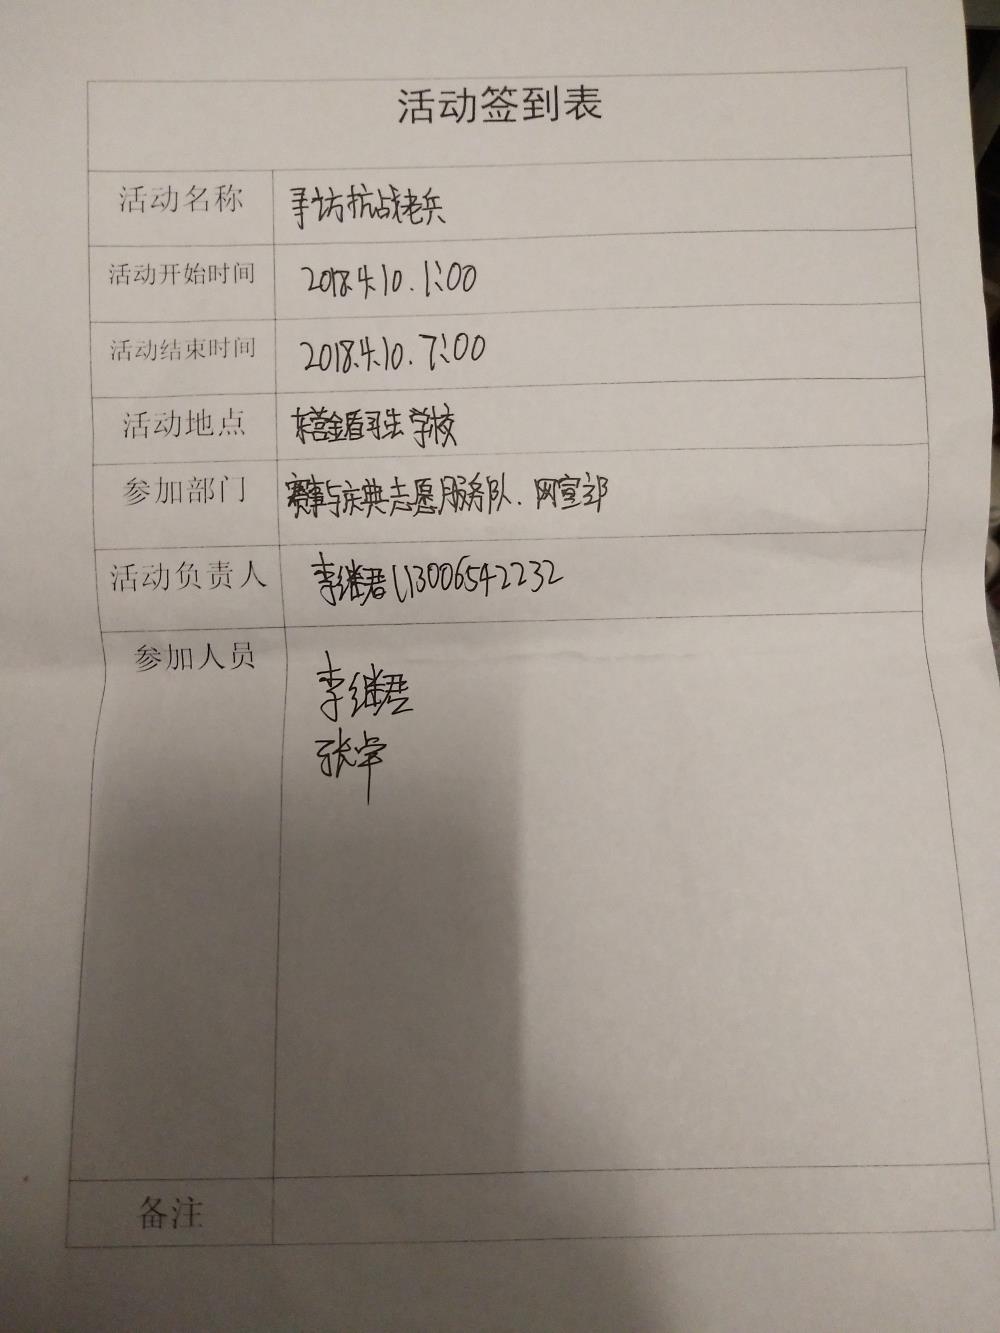 活动签到表
活动名称 寻访抗战老兵
活动开始时间 2018.4.10. 1:00
活动结束时间 2018.4.10. 7:00
活动地点 东营金盾 学校
参加部门 赛事与庆典志愿服务队、网宣部
活动负责人 李继君(13006542232
参加人员 李继君
张
备注